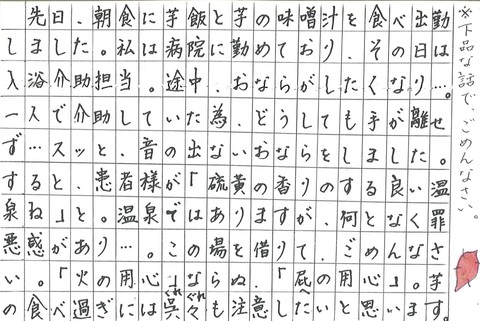 ※下品な話で、ごめんなさい。
先日、朝食に芋飯と芋の味噌汁を食べ出勤
しました。私は病院に勤めており、その日は
入浴介助担当。途中、おならがしたくなり…。
一人で介助していた為、どうしても手が離せ
ず…スッと、音の出ないおならをしました。
すると、患者様が「硫黄の香りのする良い温
泉ね」と。温泉ではありますが、何となく罪
悪感があり…。この場を借りて、ごめんなさ
い。「火の用心」ならぬ、「屁の用心」。芋
へ
くれぐれ
の食べ過ぎには呉々も注意したいと思います。